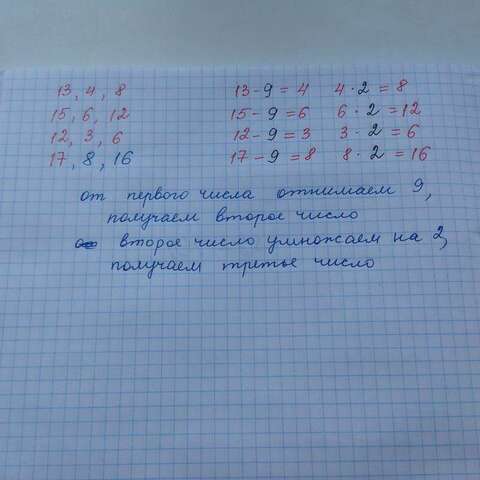 13, 4, 8 13-9=4 4·2=8
15, 6, 12 15-9=6 6·2=12
12, 3, 6 12-9=3 3·2=6
17, 8, 16 17-9=8 8·2=16
от первого числа отнимаем 9,
получаем второе число
второе число умножаем на 2,
получаем третье число